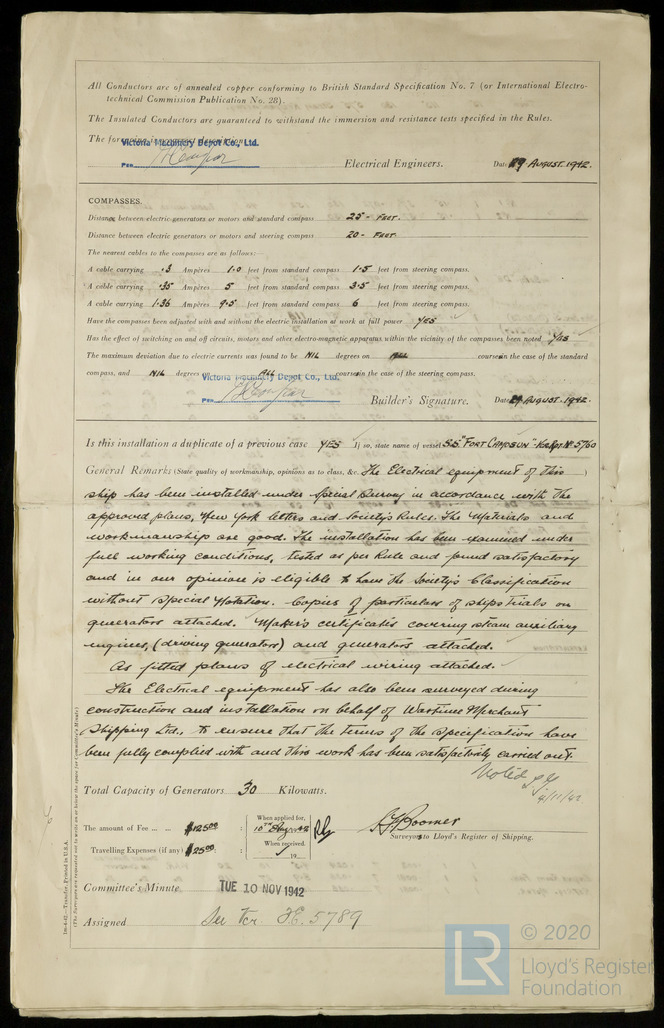 All Conductors are of annealed copper conforming to British Standard Specification No. 7 (or International Electro-
technical Commission Publication No. 28).
The Insulated Conductors are guaranteed to withstand the immersion and resistance tests specified in the Rules.
The foregoing
Victoria Machinery Depot Co., Ltd.
PER
Electrical Engineers. Date 29 AUGUST. 1942.
COMPASSES.
Distance between electric generators or motors and standard compass 25 - FEET.
Distance between electric generators or motors and steering compass 20 - FEET.
The nearest cables to the compasses are as follows:—
A cable carrying .3 Ampères 1.0 feet from standard compass 1.5 feet from steering compass.
A cable carrying .35 Ampères 5 feet from standard compass 3.5 feet from steering compass.
A cable carrying 1.36 Ampères 9.5 feet from standard compass 6 feet from steering compass.
Have the compasses been adjusted with and without the electric installation at work at full power YES
Has the effect of switching on and off circuits, motors and other electro-magnetic apparatus within the vicinity of the compasses been noted YES
The maximum deviation due to electric currents was found to be NIL degrees on ALL course in the case of the standard
compass, and NIL degrees on ALL course in the case of the steering compass.
Victoria Machinery Depot Co., Ltd.
PER
Builder's Signature. Date 29 AUGUST. 1942.
Is this installation a duplicate of a previous case YES If so, state name of vessel S.S. "FORT CAMOSUN" Vcr. Rpt. No. 5760
General Remarks (State quality of workmanship, opinions as to class, &c. The Electrical equipment of this )
ship has been installed under Special Survey in accordance with the
approved plans, New York letters and Society's Rules. The Materials and
workmanship are good. The installation has been examined under
full working conditions, tested as per Rule and found satisfactory
and in our opinion is eligible to have the Society's Classification
without Special Notation. Copies of particulars of ships trials on
generators attached. Maker's certificates covering steam auxiliary
engines, (driving generators) and generators attached.
As fitted plans of electrical wiring attached.
The Electrical equipment has also been surveyed during
construction and installation on behalf of Wartime Merchant
Shipping Ltd., to ensure that the terms of the specification have
been fully complied with and this work has been satisfactorily carried out.
Noted
4/11/42
Total Capacity of Generators 30 Kilowatts.
The amount of Fee ... ... $125.00 : When applied for, 10TH Aug 1942
Travelling Expenses (if any) $25.00 : When received, 19
Boomer
Surveyors to Lloyd's Register of Shipping.
Committee's Minute TUE 10 NOV 1942
Assigned See Vcr. F.E. 5789
1m-4-42.—Transfer, Printed in U.S.A.
(The Surveyors are requested not to write on or below the space for Committee's Minute.)
LR
© 2020
Lloyd's Register
Foundation